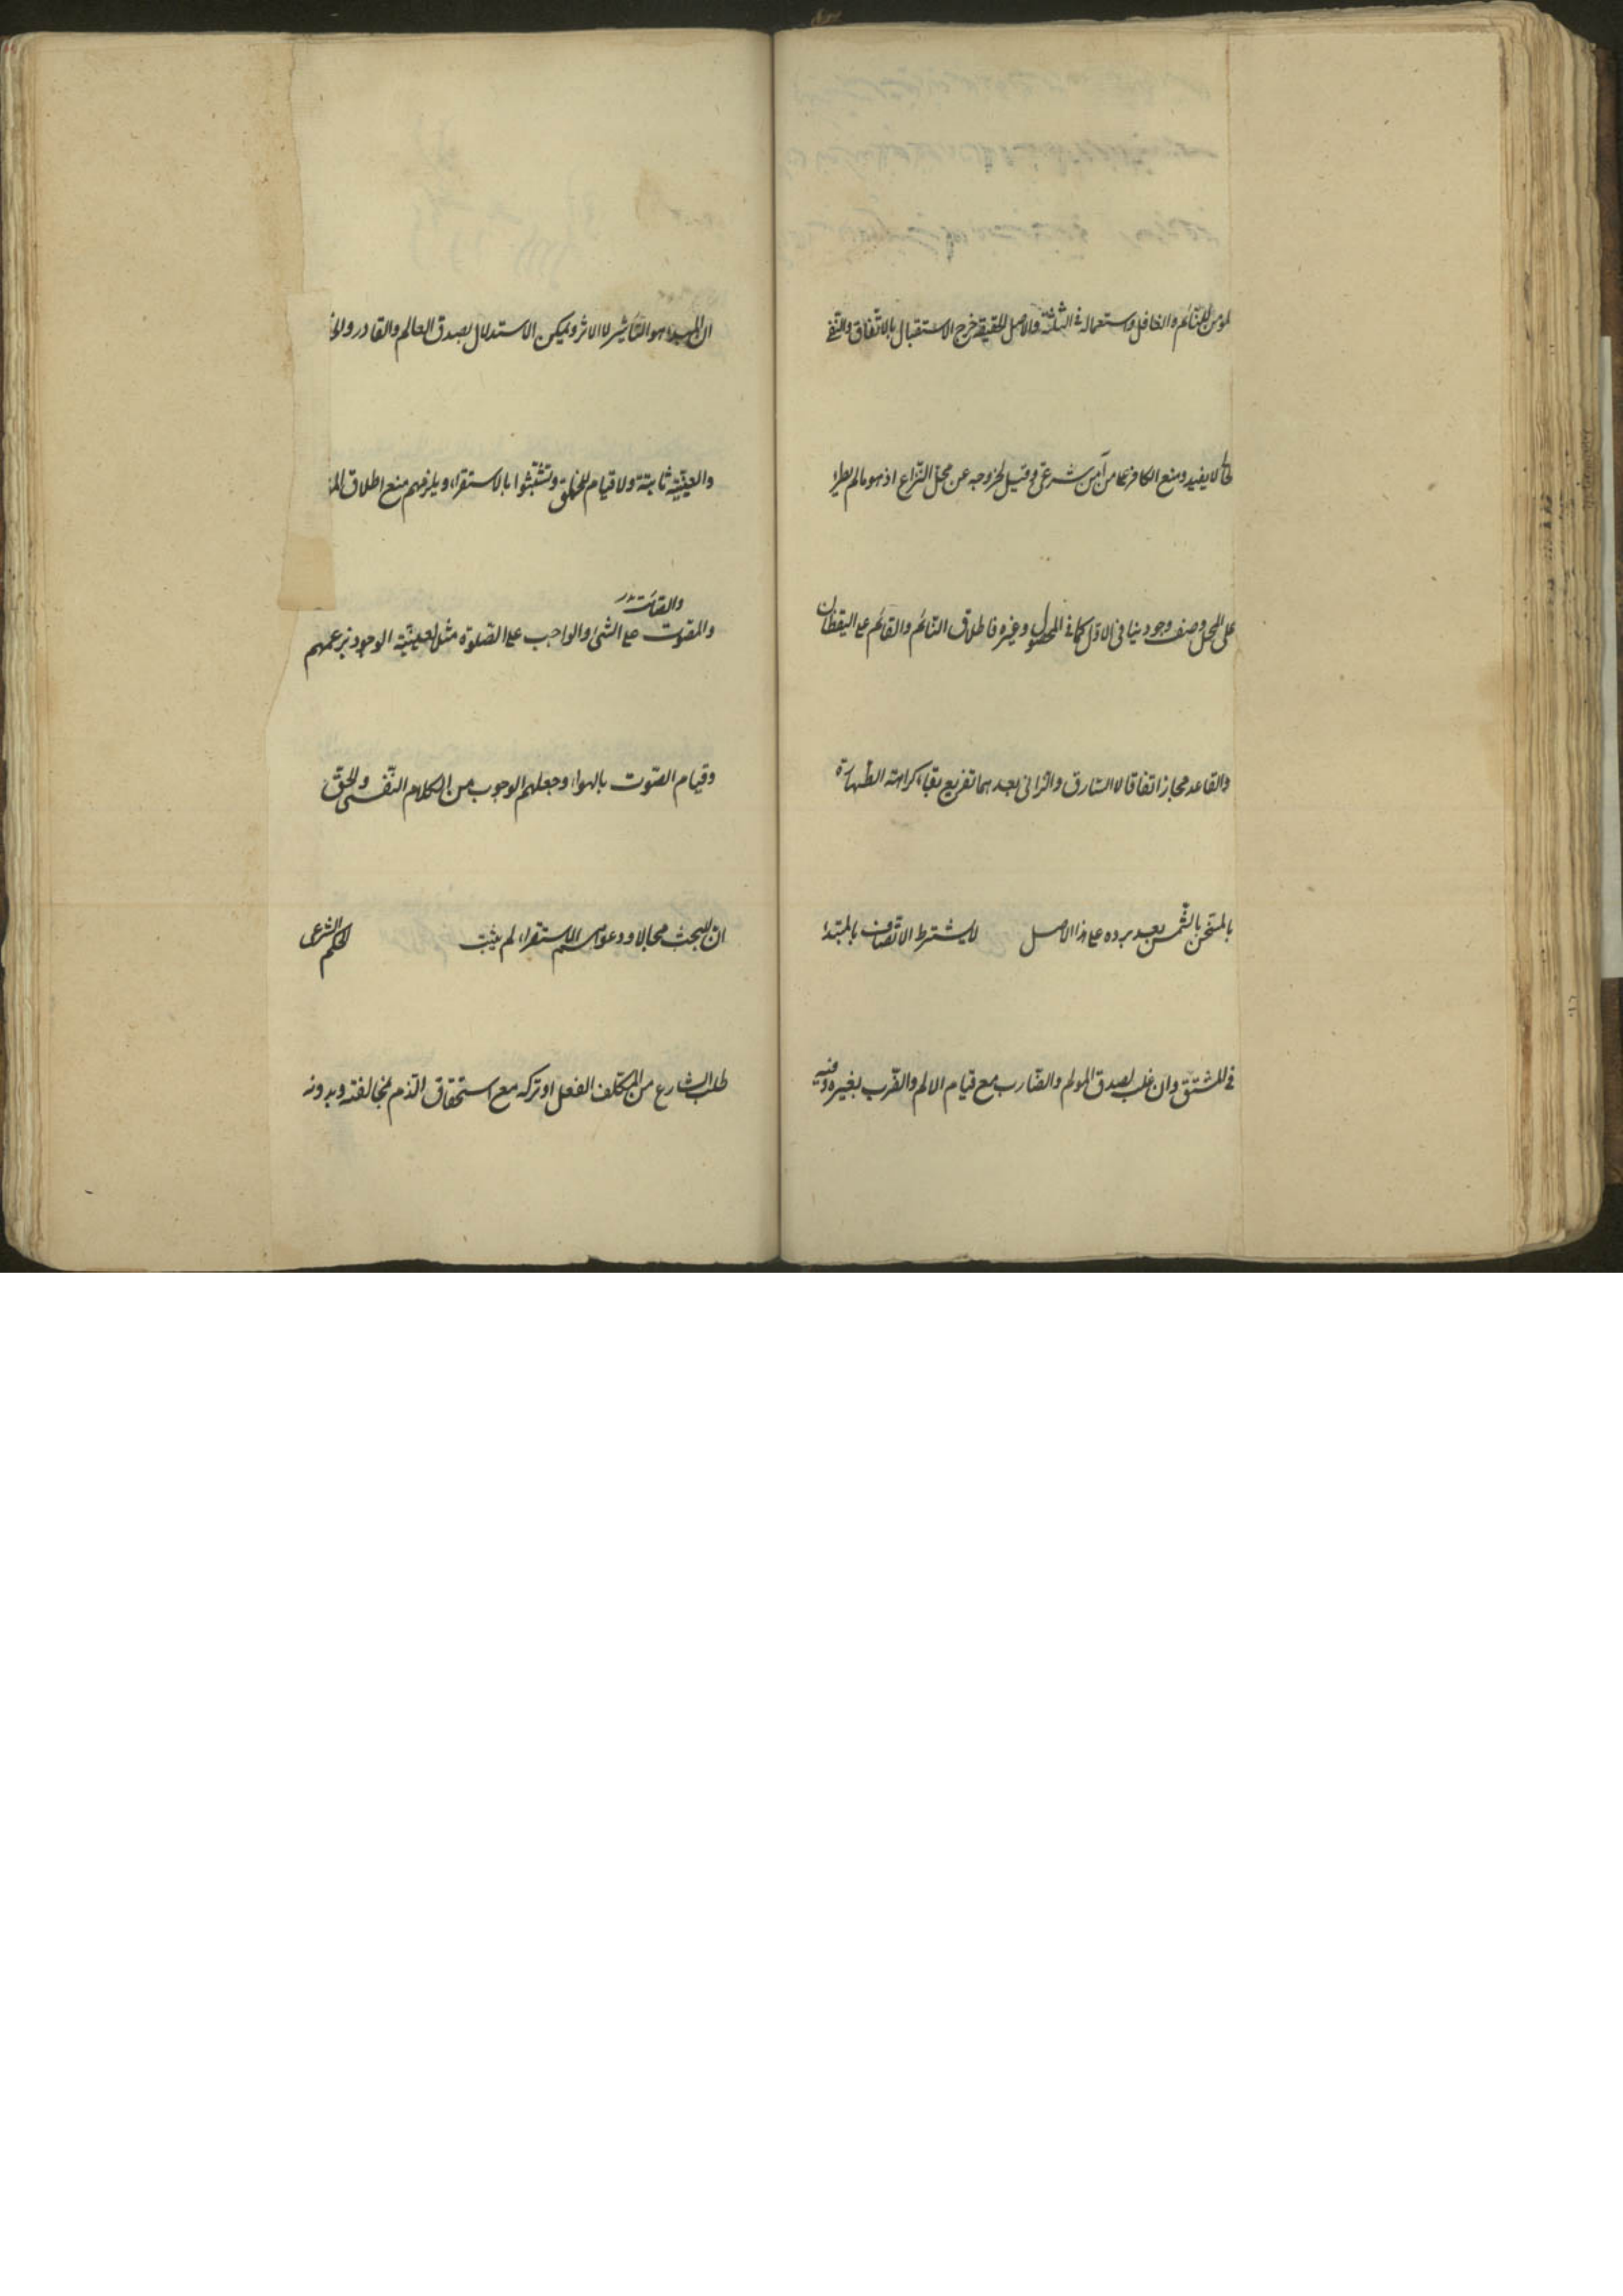 لمؤمن للنائم والغافل واستعماله في الثلثة والاصل الحقيقة خرج الاستقبال بالاتفاق والنفي
لا يفيد ومنع الكافر عامن آمن شرعي وقيل لخروجه عن محل النزاع اذ هو ما لم يطرء
على المحل وصف وجودي ينافي الاول كما في المحصول وغيره فاطلاق النائم والقائم على اليقظان
والقاعد مجاز اتفاقا لا السارق والزاني بعدهما تفريع بقاء كراهة الطهارة
بالمسخن بالشمس بعد برده على هذا الاصل لا يشترط الاتصاف بالمبتدا
في المشتق وان غلب لصدق المولم والضارب مع قيام الالم والضرب بغيره وفيه
ان المبدا هو التاثير لا الاثر ويمكن الاستدلال بصدق العالم والقادر
والعينية ثابتة ولا قيام للخلق وتشبثوا بالاستقراء ويلزمهم منع اطلاق
والقائت
والمقوت على الشئ والواجب على الصلوة مثل لعينية الوجود بزعمهم
وقيام الصوت بالهواء وجعلهم الوجوب من الكلام النفسي والحق
ان للبحث مجالا ودعوى الاستقراء لم يثبت الحكم الشرعي
طلب الشارع من المكلف الفعل او تركه مع استحقاق الذم بمخالفته وبدونه